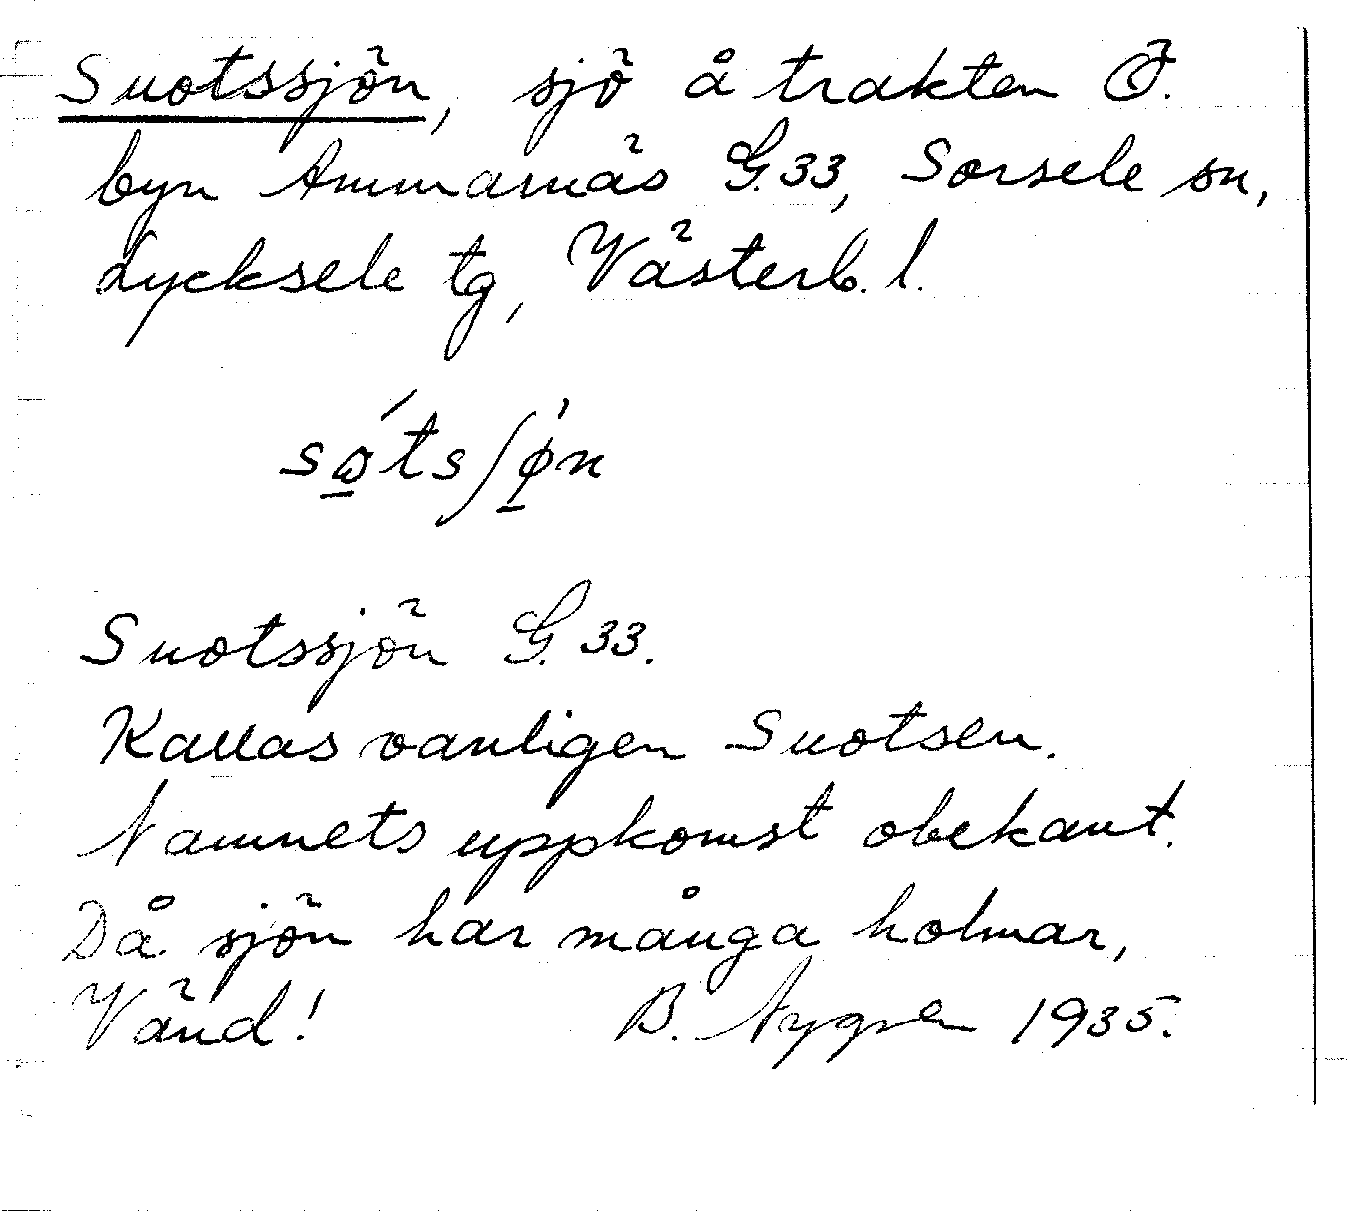 Suotssjön, sjö å trakten Ö.
byn Ammarnäs G.33, Sorsele sn,
Lycksele tg, Västerb. l.
Suotssjön G. 33.
Kallas vanligen Suotsen.
Namnets uppkomst obekant.
Då sjön har många holmar,
Vänd! B. Nygren 1935.